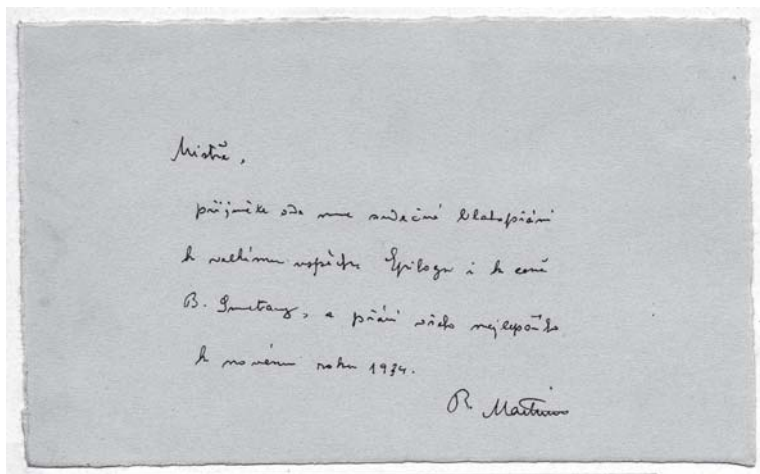 Mistře,
přijměte ode mne srdečné blahopřání
k velkému úspěchu Epilogu i k ceně
B. Smetany, a přání všeho nejlepšího
k novému roku 1934.
B. Martinů